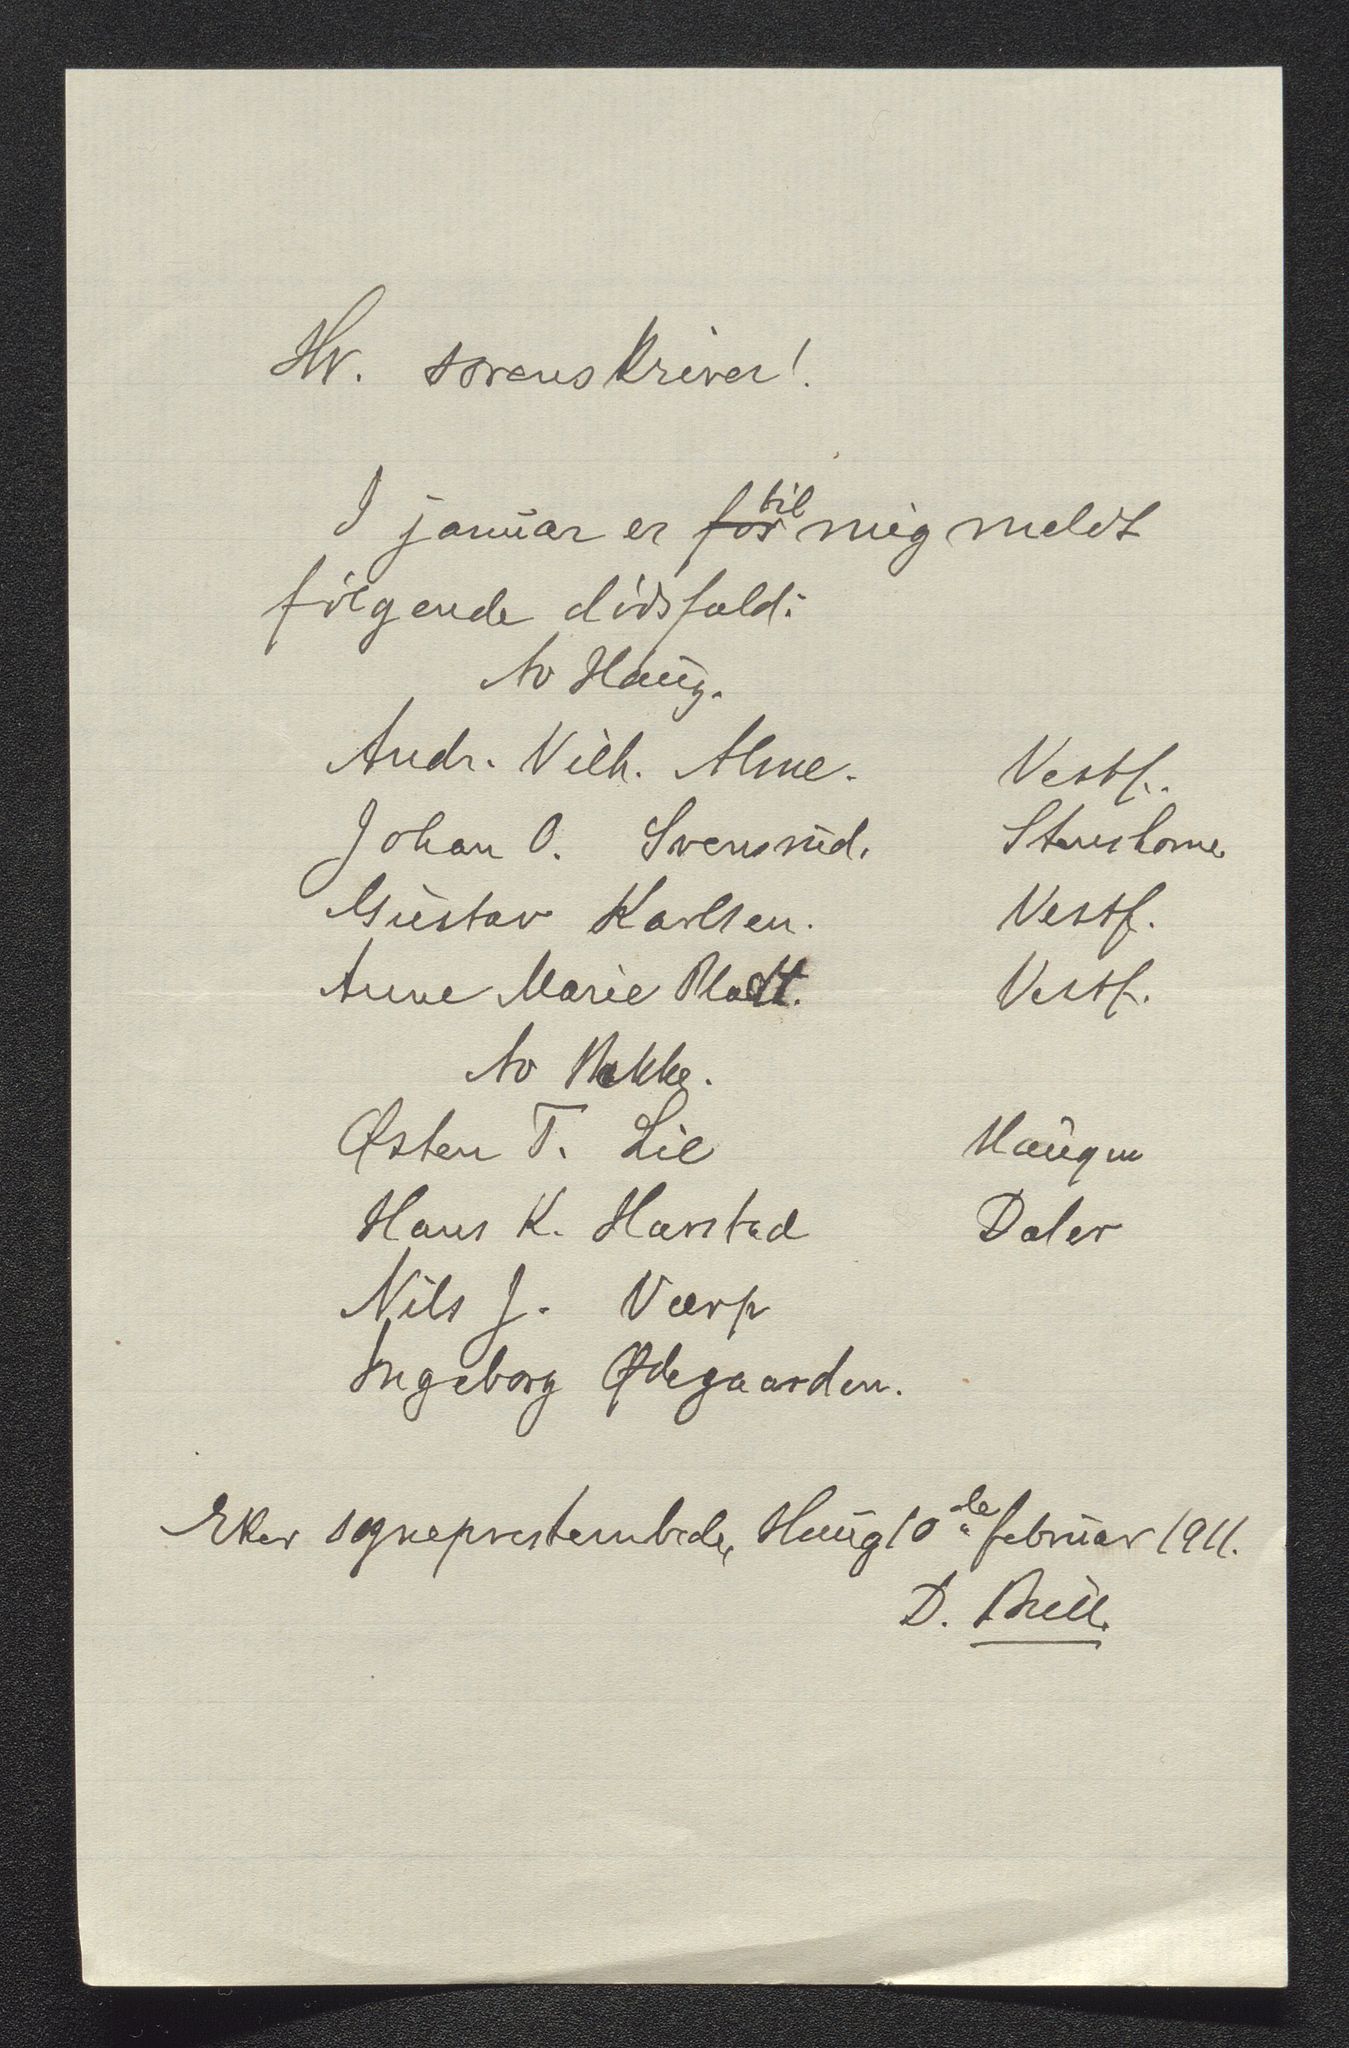 Hr. sorenskriver!
I januar er for til mig meldt
følgende dødsfald:
Av Haug.
Andr. Vilh. Alme. Vestf.
Johan O. Svensrud.
Gustav Karlsen. Vestf.
Anne Marie Vestf.
Av Bakke.
Østen T. Lie Haugen
Hans K. Harstad Daler
Nils J. Varp
Ingeborg Ødegaarden.
Eker sogneprestembede, Haug 10de februar 1911.
D.